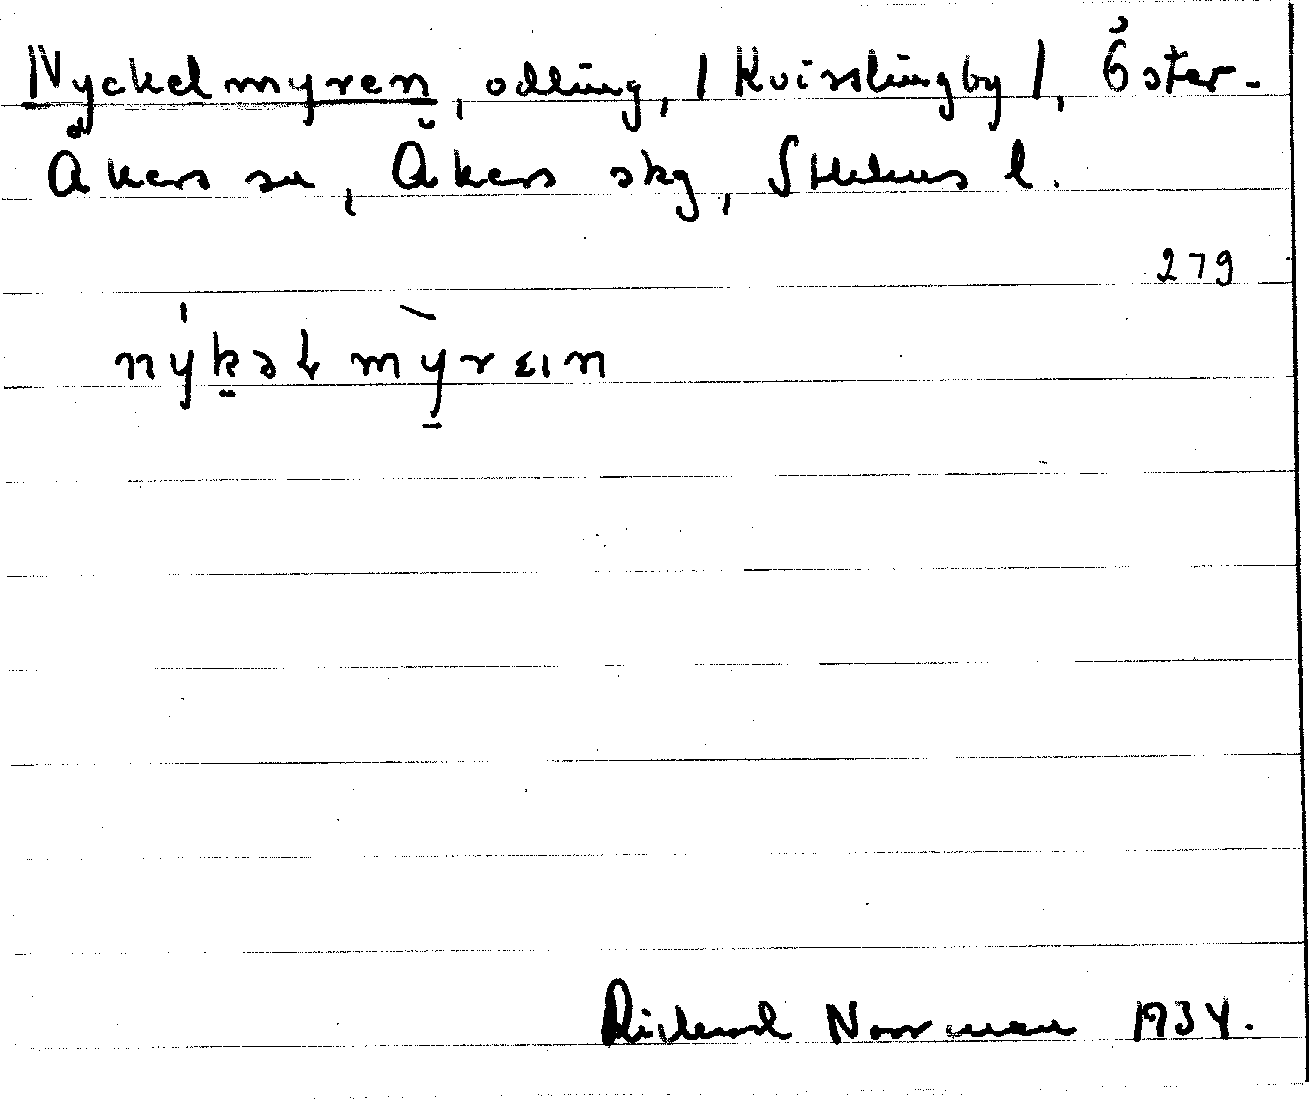 Nyckelmyren, odling, / Kvisslingby /, Öster-
Åkers sn, Åkers skg, Sthlms l.
279
nykəl myrεın
Rickard Norrman 1934.